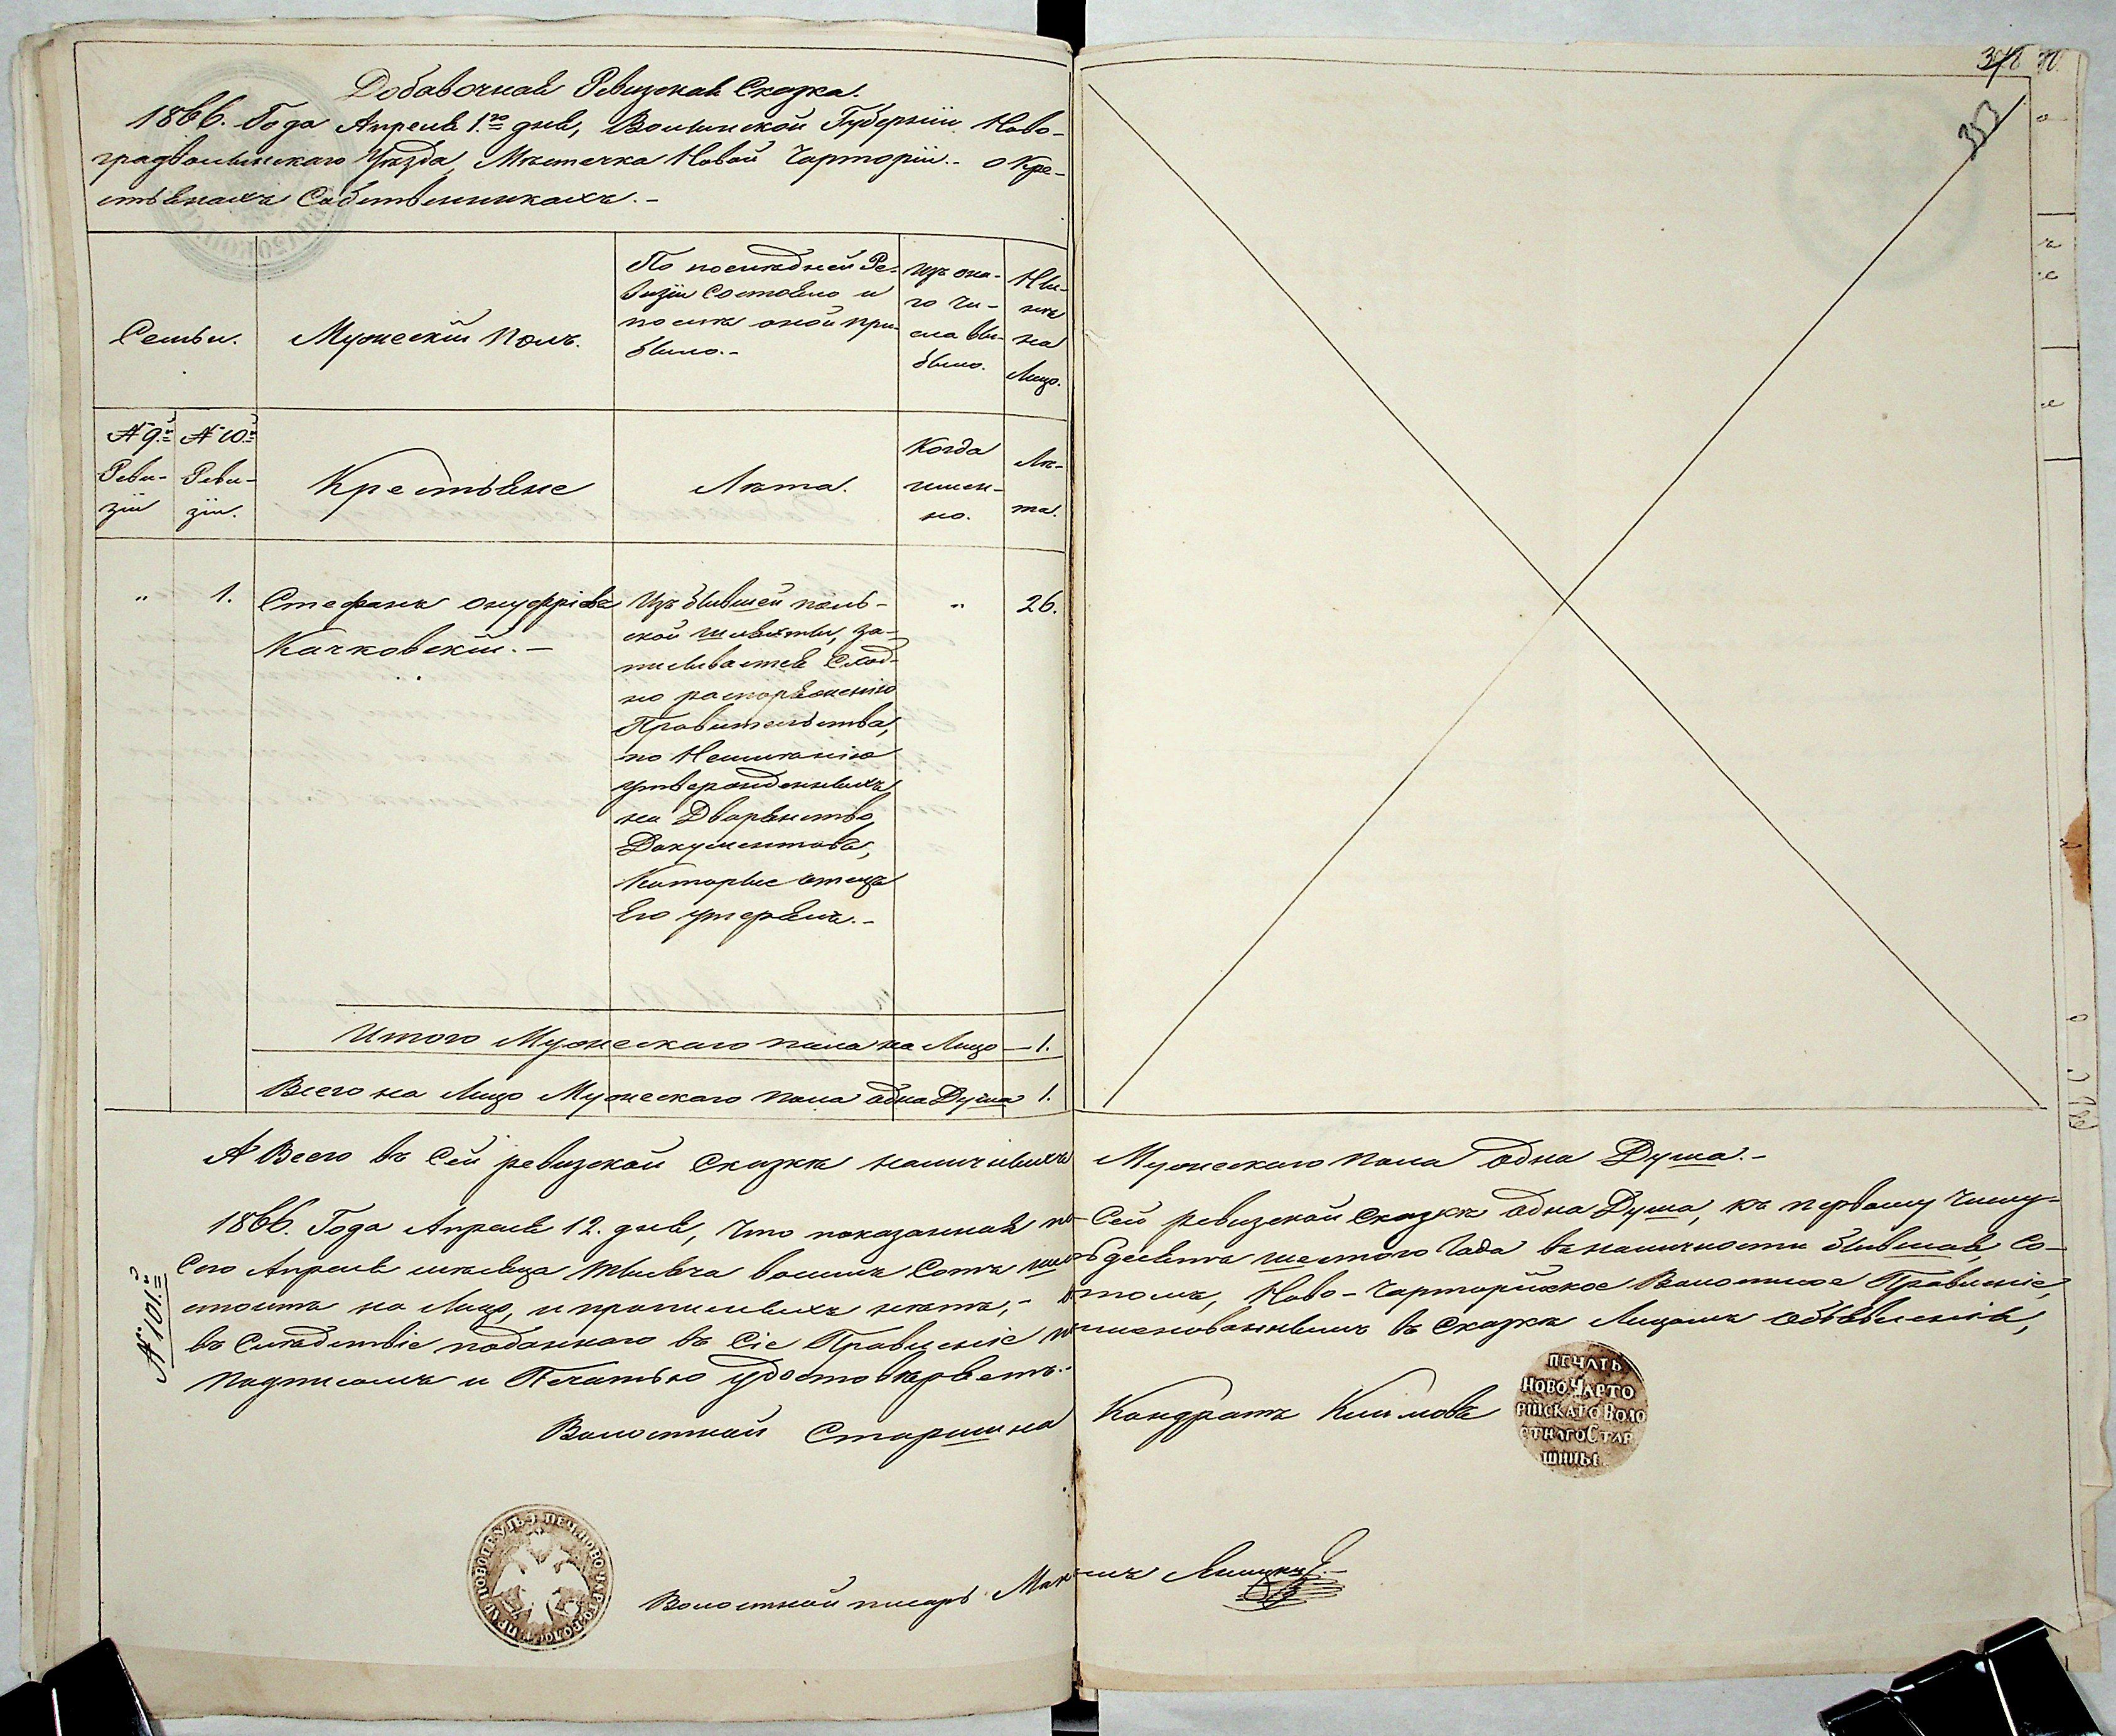 Добавочная Ревизская Сказка.
1866. Года Апреля 1.го дня, Волынской Губернїи Ново-
градволынскаго Уѣзда, Мѣстечка Новой Чарторїи.- о Кре-
стьянахъ Собственникахъ.-
Семьи.
Мужескїй Полъ.
По послѣдней Ре-
визїи состояло и
послѣ оной при-
было.-
Изъ она-
го чи-
сла вы-
было.
Ны-
нѣ
на
Лицо.
№ 9.й
Реви-
зїи
№ 10.й
Реви-
зїи.
Крестьяне
Лѣта.
Когда
имен-
но.
Лѣ-
та.
„
1.
Стефанъ Онуфрїевъ
Качковскїй.-
Изъ бывшей поль-
ской шляхты, за-
писывается Сход-
но распоряженїю
Правительства,
по Неимѣнїю
утвержденныхъ
на Дворянство
Документовъ,
Которые отецъ
Его утерялъ.-
„
26.
Итого Мужескаго пола на Лицо — 1.
Всего на Лицо Мужескаго пола одна Душа 1.
А Всего въ Сей ревизской Сказкѣ наличныхъ Мужескаго пола одна Душа.-
№ 101.й
1866. Года Апреля 12. дня, Что показанная по Сей ревизской Сказкѣ одна Душа, къ первому Числу
Сего Апреля мѣсяца тысяча восемь Сотъ шестьдесятъ шестого Года въ наличности бывшая, Со-
стоитъ на Лицо, и прописныхъ нѣтъ,- въ томъ, Ново-Чарторїйское Волостное Правленїе,
въ Слѣдствїе поданнаго въ Сїе Правленїе поименованнымъ въ Сказкѣ Лицомъ объявленїя,
Подписомъ и Печатью удостовѣряетъ.-
Волостной Старшина Кондратъ Климовъ
ПЕЧАТЬ
НОВО ЧАРТО
РІЙСКАГО ВОЛО
СТНАГО СТАР
ШИНЫ
Волостной писарь